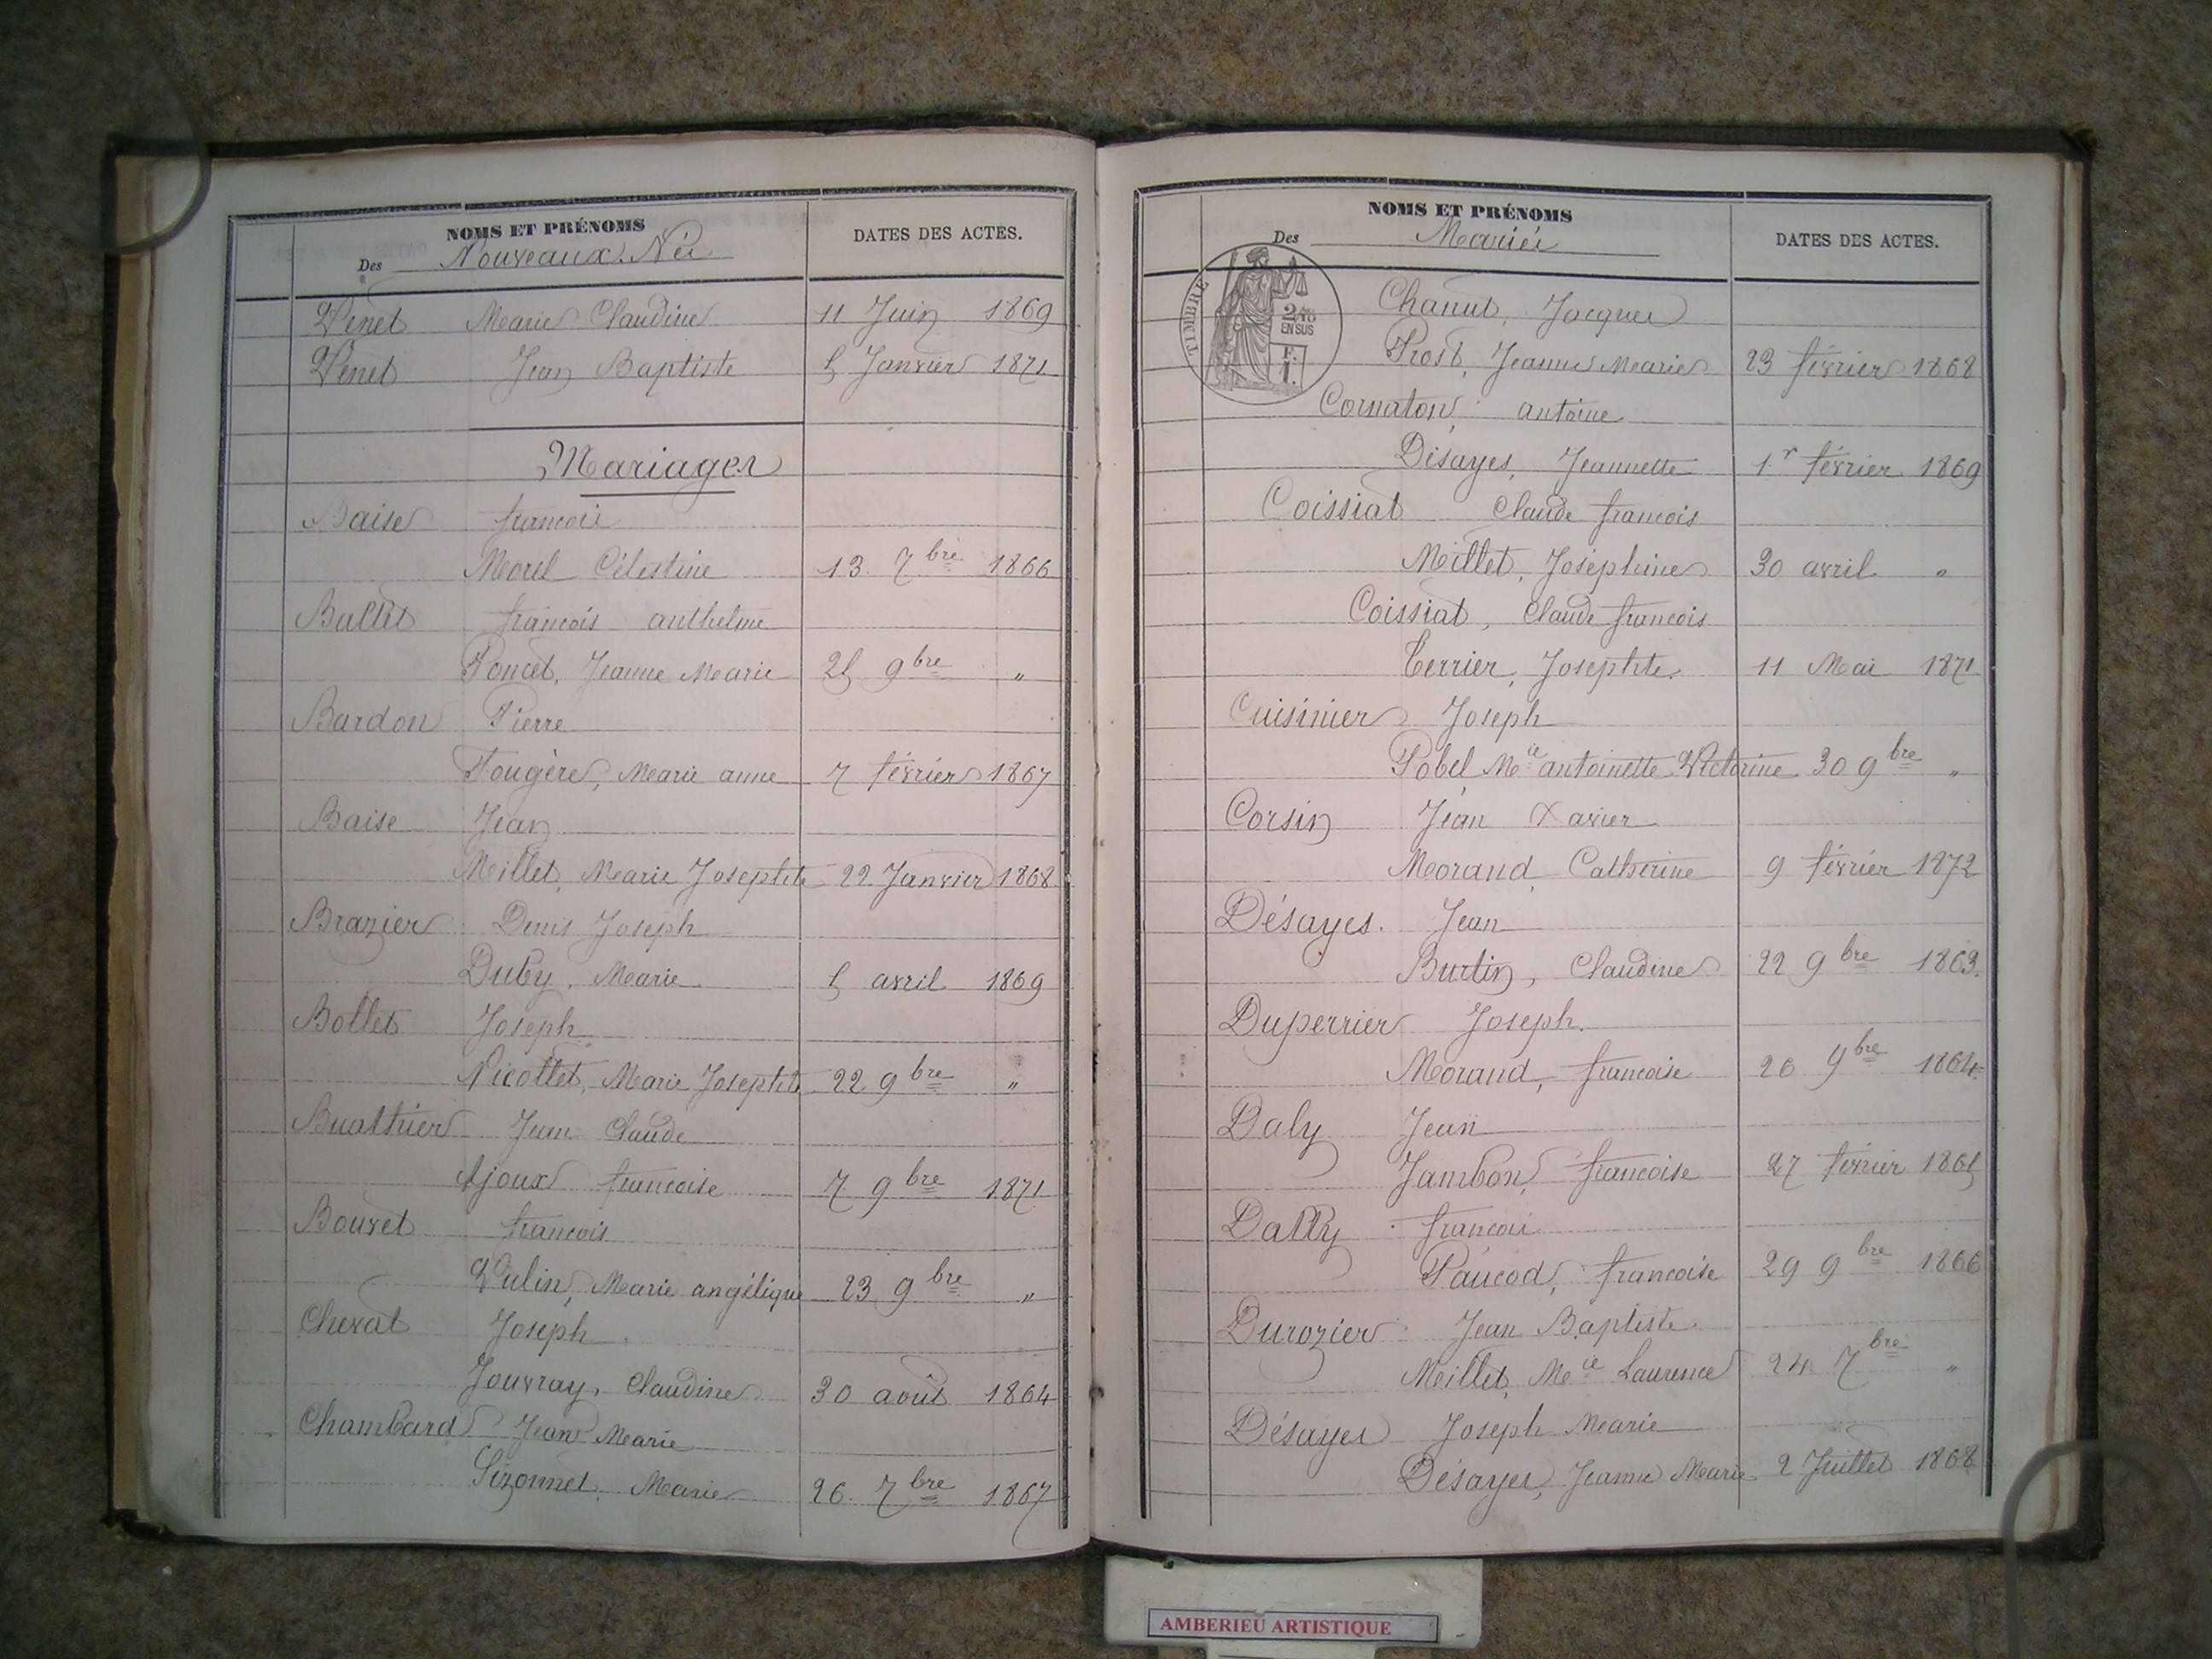 NOMS ET PRÉNOMS
Des Nouveaux Nés
DATES DES ACTES.
Venet Marie Claudine 11 Juin 1869
Venet Jean Baptiste 5 Janvier 1871
Mariages
Baise françois
Morel Célestine 13 7bre 1866
Ballet françois anthelme
Poncet, Jeanne Marie 25 9bre "
Bardon Pierre
Fougère, Marie anne 7 février 1867
Baise Jean
Millet, Marie Josephte 22 Janvier 1868
Brazier Denis Joseph
Duby, Marie 5 avril 1869
Bollet Joseph
Nicollet, Marie Josephte 22 9bre "
Buathier Jean Claude
Ajoux françoise 7 9bre 1871
Bouvet françois
Vulin, Marie angélique 23 9bre "
Chevat Joseph
Jouvray, Claudine 30 août 1864
Chambard Jean Marie
Marie 26 7bre 1867
NOMS ET PRÉNOMS
Des Mariés
DATES DES ACTES.
TIMBRE
2/10
EN SUS
F.
1.
Chanut, Jacques
Prost, Jeanne Marie 23 février 1868
Cornaton, antoine
Désayes, Jeannette 1r février 1869
Coissiat Claude françois
Millet, Joséphine 30 avril "
Coissiat, Claude françois
Terrier, Josephte 11 Mai 1871
Cuisinier Joseph
Pobel, Mie antoinette Victorine 30 9bre "
Corsin Jean Xavier
Morand Catherine 9 février 1872
Désayes. Jean
Burtin, Claudine 22 9bre 1863.
Duperrier Joseph.
Morand, françoise 26 9bre 1864
Daly Jean
Jambon, françoise 27 février 1865
Dally françois
Paucod, françoise 29 9bre 1866
Durozier Jean Baptiste
Millet, Mie Laurence 24 7bre "
Désayes Joseph Marie
Désayes, Jeanne Marie 2 Juillet 1868
AMBERIEU ARTISTIQUE